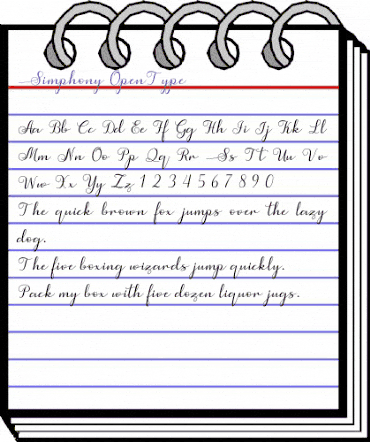 Simphony OpenType
Aa Bb Cc Dd Ee Ff Gg Hh Ii Jj Kk Ll
Mm Nn Oo Pp Qq Rr Ss Tt Uu Vv
Ww Xx Yy Zz 1 2 3 4 5 6 7 8 9 0
The quick brown fox jumps over the lazy
dog.
The five boxing wizards jump quickly.
Pack my box with five dozen liquor jugs.